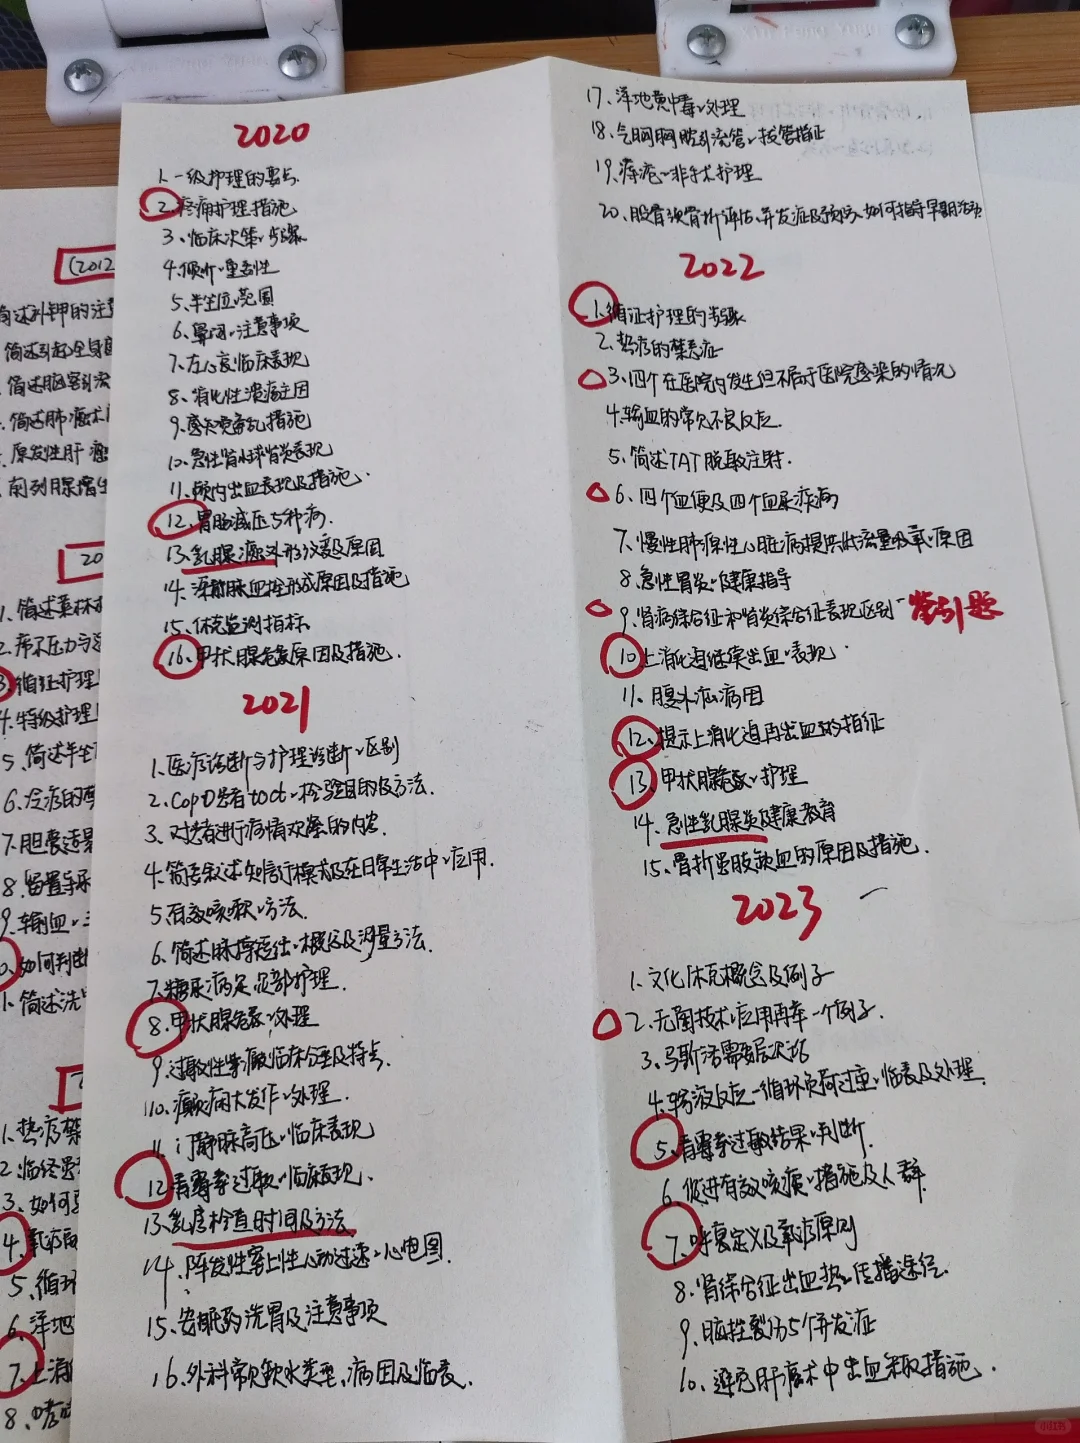 2020
1.一级护理的要点
2.疼痛护理措施
3.临床决策、步骤
4.倾听、重要性
5.半坐位范围
6.鼻饲、注意事项
7.左心衰临床表现
8.消化性溃疡主因
9.感知觉紊乱措施
10.急性肾小球肾炎表现
11.颅内出血表现及措施.
12.胃肠减压5种病.
13.乳腺癌外形改变及原因
14.深静脉血栓形成原因及措施
15.休克监测指标
16.甲状腺危象原因及措施.
2021
1.医疗诊断与护理诊断、区别
2.COPD患者 检验目的及方法.
3.对患者进行病情观察的内容.
4.简要叙述知信行模式及在日常生活中、应用.
5.有效咳嗽、方法.
6.简述脉搏短绌、概念及测量方法.
7.糖尿病足足部护理.
8.甲状腺危象、处理
9.过敏性紫癜临床分型及特点.
10.癫痫大发作、处理.
11.门静脉高压、临床表现
12.青霉素过敏、临床表现.
13.乳房检查时间及方法
14.阵发性室上性心动过速、心电图.
15.安眠药洗胃及注意事项
16.外科常见缺水类型、病因及临表.
17.洋地黄中毒、处理
18.气胸胸腔引流管、拔管指征
19.痔疮、非手术护理
20.股骨颈骨折评估、并发症及预防、如何指导早期活动
2022
1.循证护理的步骤
2.热疗的禁忌症
3.四个在医院内发生但不属于医院感染的情况
4.输血的常见不良反应.
5.简述TAT脱敏注射.
6.四个血便及四个血尿疾病
7.慢性肺源性心脏病提供低流量吸氧、原因
8.急性胃炎、健康指导
9.肾病综合征和肾炎综合征表现区别
10.上消化道继续出血、表现.
11.腹外疝病因
12.提示上消化道再出血的指征
13.甲状腺危象、护理
14.急性乳腺炎健康教育
15.骨折患肢缺血的原因及措施.
2023
1.文化休克概念及例子
2.无菌技术、应用再举一个例子.
3.马斯洛需要层次论
4.输液反应—循环负荷过重、临表及处理.
5.青霉素过敏结果、判断.
6.促进有效咳痰、措施及人群.
7.呼衰定义及氧疗原则
8.肾综合征出血热、传播途径.
9.脑挫裂伤5个并发症
10.避免肝癌术中出血采取措施.
(2012
简述补钾的注意
简述引起全身
简述脑室引流
简述肺癌术
原发性肝癌
前列腺增生
20
1.简述
2.
3.循证护理
4.特级护理
5.简述半坐
6.冷疗的禁
7.胆囊造影
8.留置导尿
9.输血、三
如何判断
1.简述洗
1.热疗禁
2.临终患
3.如何
4.氧疗
5.循环
6.洋地
7.上消
8.哮喘
小红书